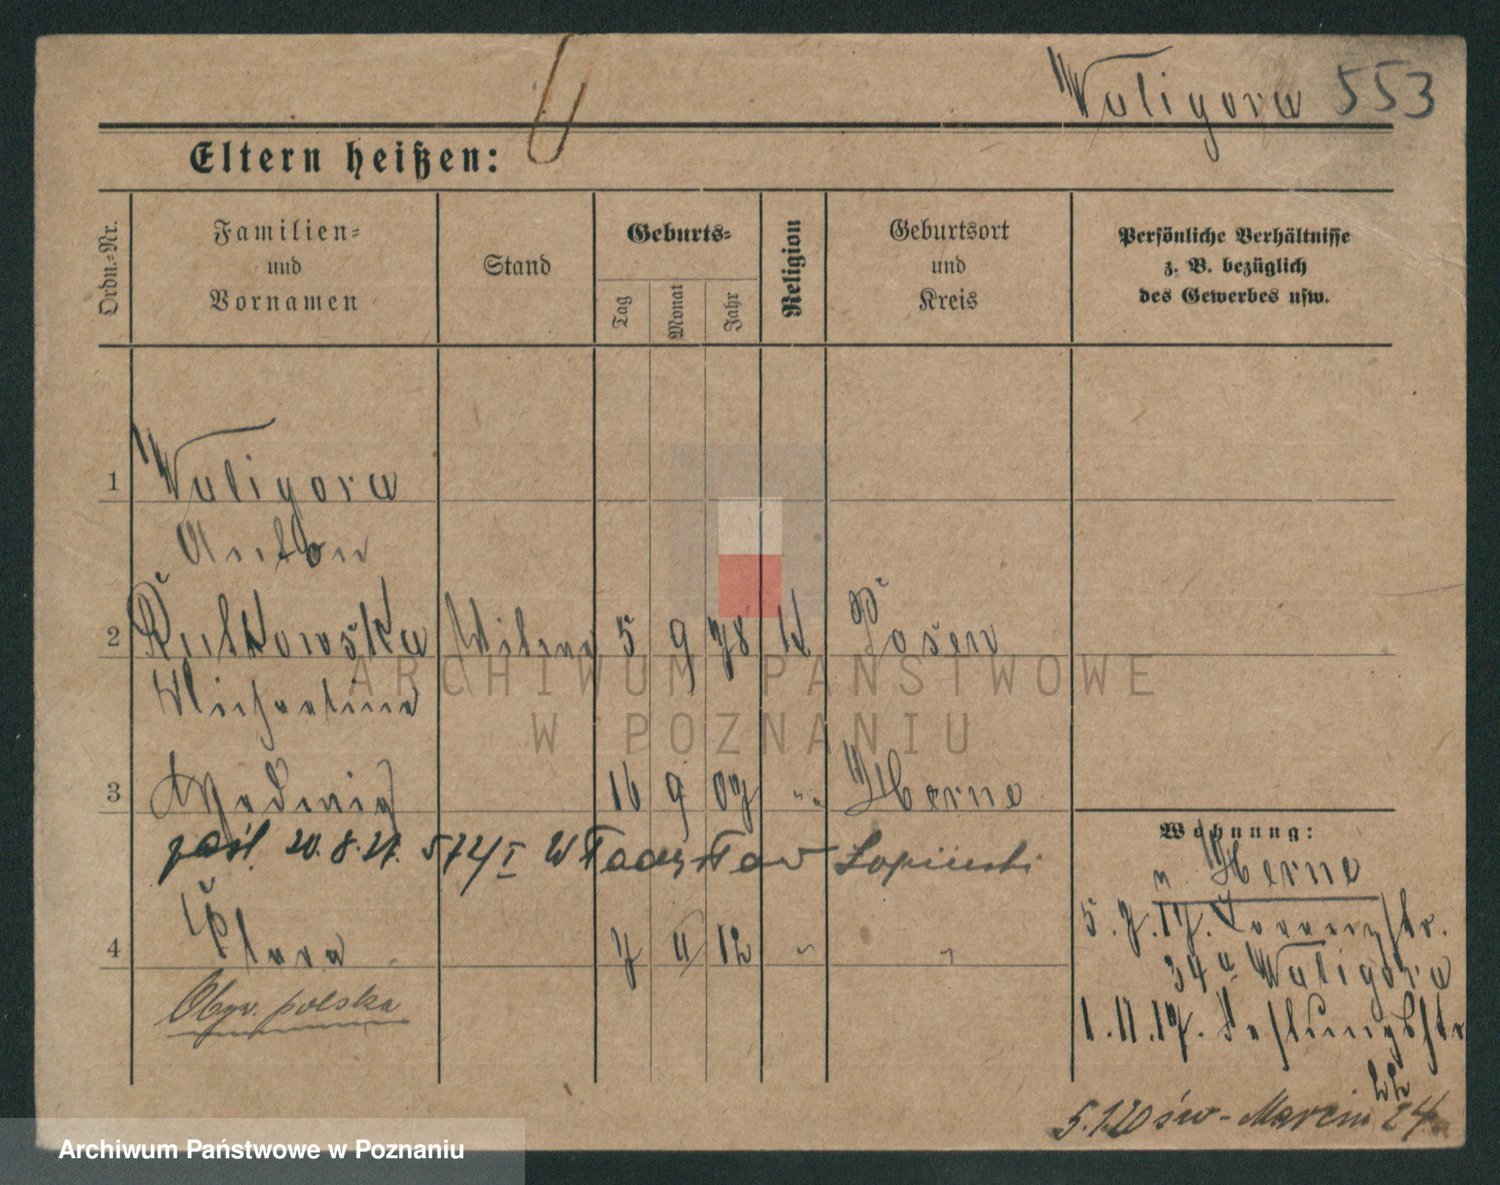 Waligora 553
Eltern heißen:
Ordn.-Nr.
Familien-
und
Vornamen
Stand
Geburts-
Tag
Monat
Jahr
Religion
Geburtsort
und
Kreis
Persönliche Verhältnisse
z. B. bezüglich
des Gewerbes usw.
1 Waligora
Anton
2 Rutkowska Witwe 5 9 78 K Posen
Michaelina
3 Hedwig 16 9 07 " Herne
pośl. 20.8.27. 5724 I Władysław Łopiński
4 Klara 7 11 12 " "
Obyw. polska
Wohnung:
v. Herne
5.7.17. Lorenzstr.
34 a Waligora
1.11.17.
22
5.1.20 św-Marcin 24
ARCHIWUM PAŃSTWOWE
W POZNANIU
Archiwum Państwowe w Poznaniu